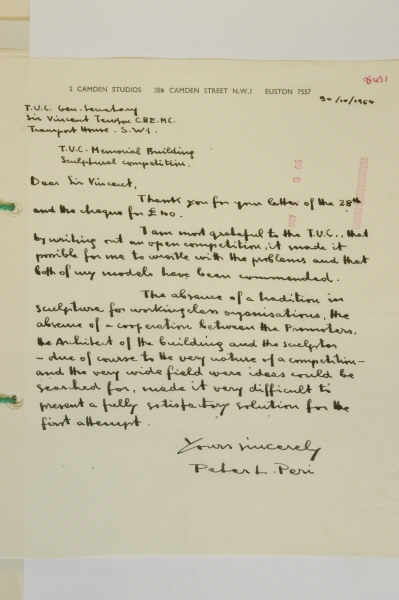 8431
2 CAMDEN STUDIOS 28B CAMDEN STREET N.W.1 EUSTON 7557
30/10/1954
T.U.C. Gen. Secretary
Sir Vincent Tewson C.B.E. M.C.
Transport House. S.W.1.
T.U.C. Memorial Building
Sculptural competition.
Dear Sir Vincent,
Thank you for your letter of the 28th
and the cheque for £100.
I am most grateful to the T.U.C., that
by writing out an open competition, it made it
possible for me to wrestle with the problems and that
both of my models have been commended.
The absence of a tradition in
sculpture for working class organisations, the
absence of a cooperation between the Promoters,
the Architect of the building and the sculptor
– due of course to the very nature of a competition –
and the very wide field were ideas could be
searched for, made it very difficult to
present a fully satisfactory solution for the
first attempt.
Yours sincerely
Peter L. Peri